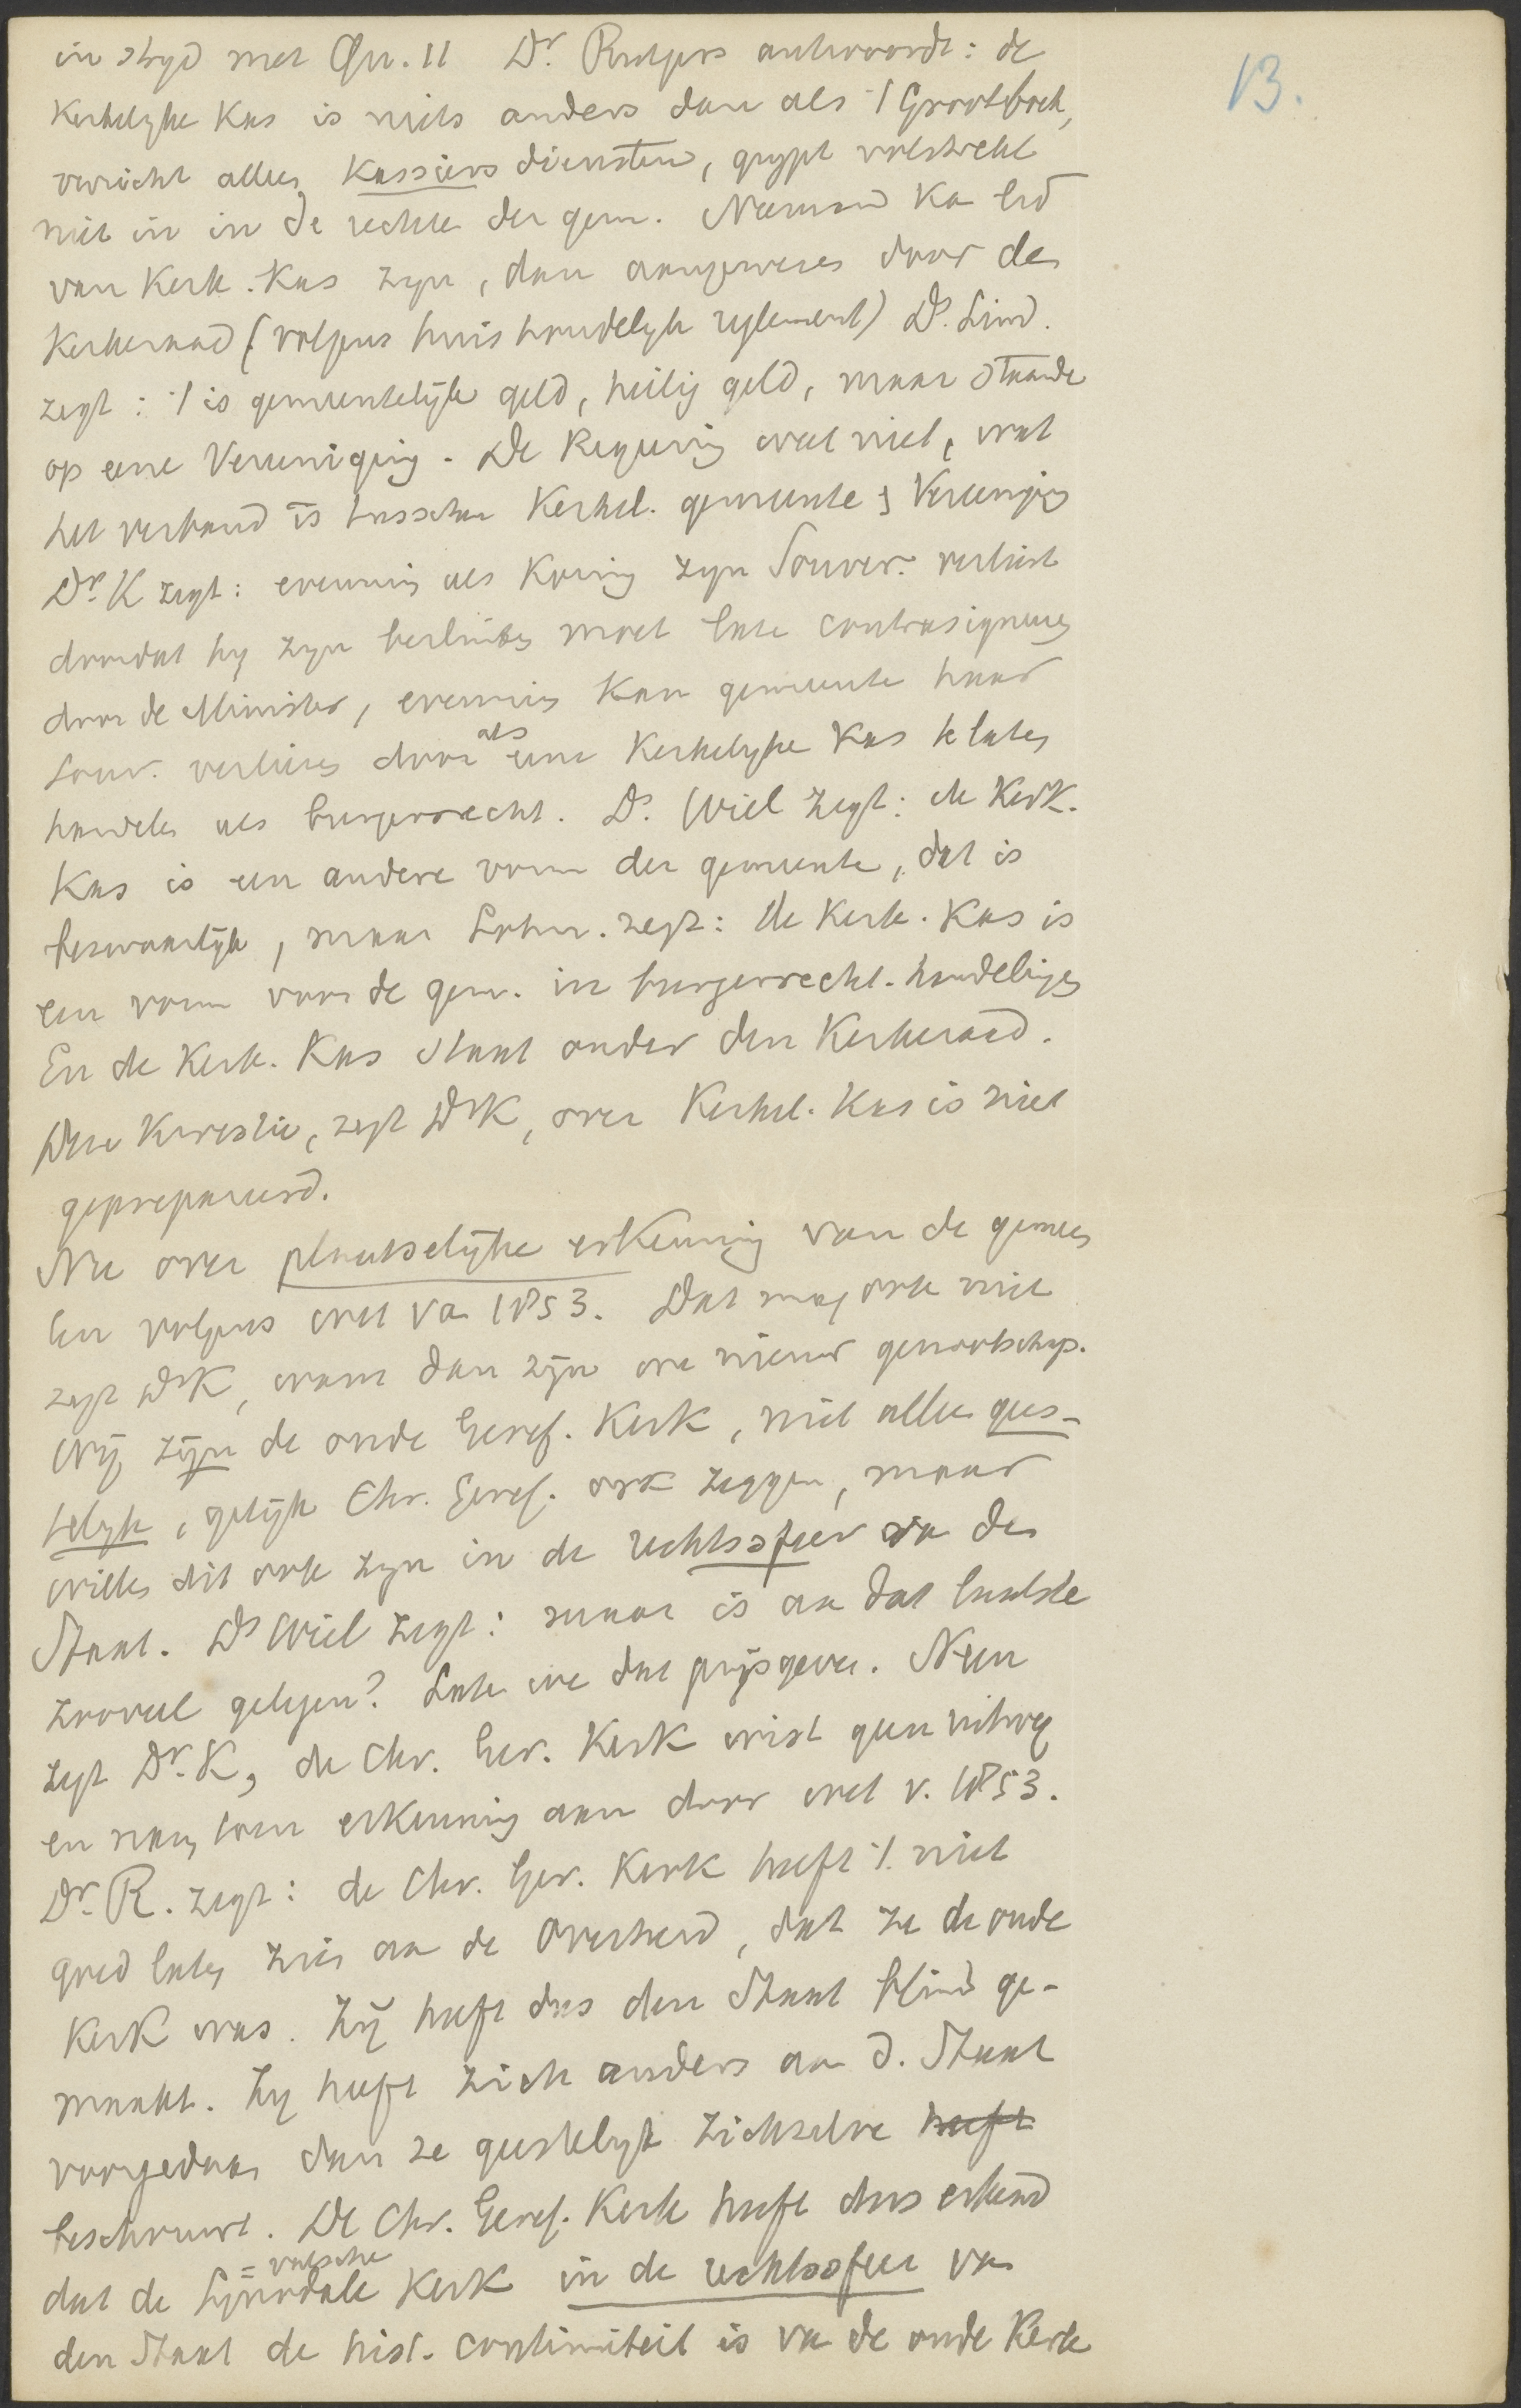 13.
in stryd met Qu. 11 Dr. Rutgers antwoordt: de
Kerkelyke Kas is niets anders dan als 't Grootboek,
verricht alleen Kassiers diensten, grypt volstrekt
niet in in de rechten der gem. Niemand ka lid
van Kerk. Kas zyn, dan aangewezen door den
Kerkeraad (volgens huishoudelyk reglement) Ds. Lind.
zegt: 't is gemeentelijk geld, heilig geld, maar staande
op eene Vereeniging. De Regeering weet niet, wat
het verband is tusschen Kerkel. gemeente & Vereenigig
Dr. K zegt: evenmin als Koning zyn Souver. verliest
doordat hy zyn besluiten moet late contrasigneren
door de Minister, evenmin kan gemeente haar
Souv. verliezen door als eene Kerkelyke Kas te laten
handelen als burgerrecht. Ds. Wiel zegt: de Kerk.
Kas is een andere vorm der gemeente, dat is
bezwaarlijk, maar Lohm. zegt: de Kerk. Kas is
een vorm voor de gem. in burgerrecht. handelingen
En de Kerk. Kas staat onder den Kerkeraad.
Deze Kwestie, zegt Dr K, over Kerkel. Kas is niet
geprepareerd.
Nu over plaatselijke erkenning van de gemeen
ten volgens wet va 1853. Dat mag ook niet
zegt Dr K, want dan zijn we nieuw genootschap.
Wij zijn de oude Geref. Kerk, niet alleen gees-
telyk, gelijk Chr. Geref. ook zeggen, maar
willen dit ook zyn in de rechtssfeer va den
Staat. Ds Wiel zegt: maar is aa dat laatste
zooveel gelegen? Late we dat prijsgeven. Neen
zegt Dr. K, de Chr. Ger. Kerk wist geen uitweg
en nam toen erkenning aan door wet v. 1853.
Dr. R. zegt: de Chr. Ger. Kerk heeft 't niet
goed laten zien aa de Overheid, dat ze de oude
Kerk was. Zij heeft dus den Staat blind ge-
maakt. Zy heeft zich anders aa d. Staat
voorgedaan dan ze geestelyk zichzelve heeft
beschouwt. De Chr. Geref. Kerk heeft dus erkend
dat de Synodale = valsche Kerk in de rechtssfeer van
den Staat de hist. continuiteit is va de oude Kerk